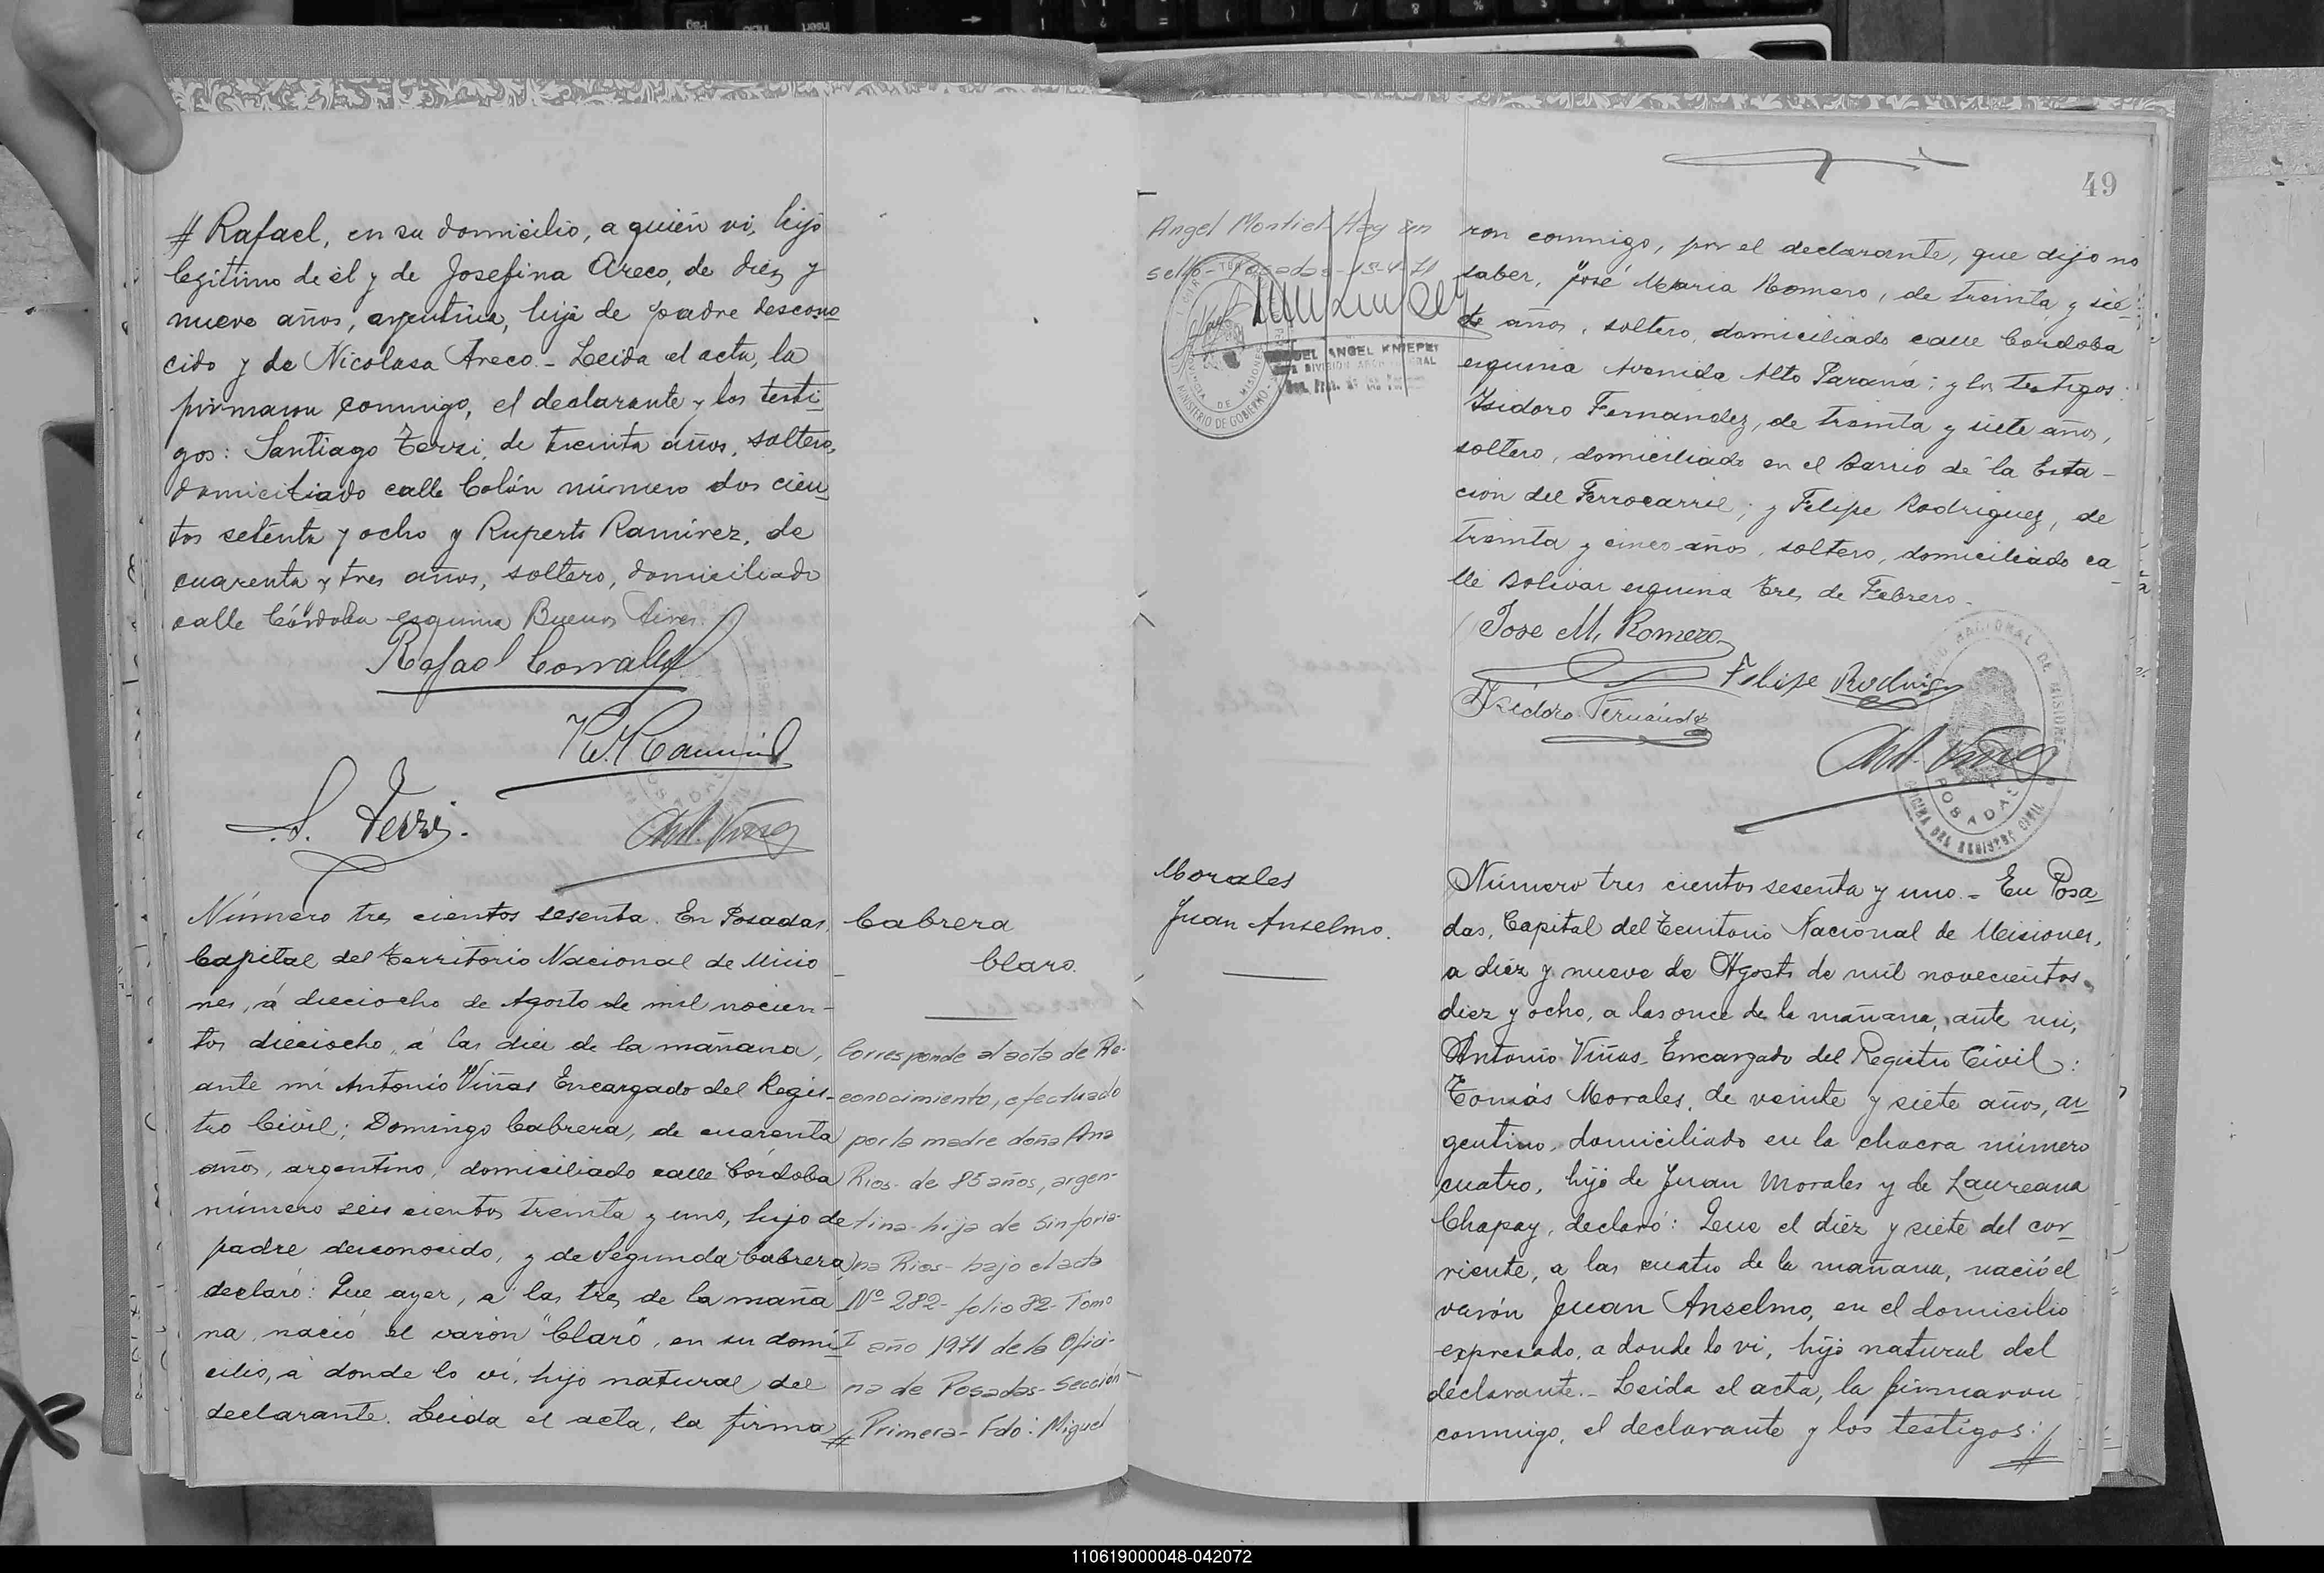 # Rafael, en su domicilio, a quién vi, hijo
legítimo de él y de Josefina Areco, de diez y
nueve años, argentina, hija de padre descono
cido y de Nicolasa Areco.- Leida el acta, la
firmaron conmigo, el declarante y los testi
gos: Santiago Terzi, de treinta años, soltero,
domiciliado calle Colón número dos cien
tos setenta y ocho y Ruperto Ramírez, de
cuarenta y tres años, soltero, domiciliado
calle Córdoba esquina Buenos Aires.
Rafael Corrales
R. Ramírez
S. Terzi.
Ant. Viñas
Número tres cientos sesenta. En Posadas,
Capital del Territorio Nacional de Micio
nes, á dieciocho de Agosto de mil nocien-
tos dieciocho, á las diez de la mañana,
ante mí Antonio Viñas Encargado del Regis-
tro Civil; Domingo Cabrera, de cuarenta
años, argentino, domiciliado calle Córdoba
número seis cientos treinta y uno, hijo de
padre desconocido, y de Segunda Cabrera
declaró: Que ayer, a las tres de la maña
na, nació el varón "Claro", en su domi
cilio, á donde lo ví, hijo natural del
declarante. Leida el acta, la firma
Cabrera
Claro.
Corresponde al acta de Re-
conocimiento, efectuado
por la madre doña Ana
Rios- de 85 años, argen-
tina- hija de Sinforia-
na Rios- bajo el acta
Nº 282- folio 82- Tomo
I año 1971 de la Ofici-
na de Posadas- Sección
# Primera- Fdo: Miguel
49
Angel Montiel- Hay un
sello- Posadas- 15-4-71
MINISTERIO DE GOBIERNO
MIGUEL ANGEL KNIEPERT
ron conmigo, por el declarante, que dijo no
saber, José Maria Romero, de treinta y sie-
te años, soltero, domiciliado calle Cordoba
esquina Avenida Alto Paraná; y los testigos:
Isidoro Fernandez, de treinta y siete años,
soltero, domiciliado en el Barrio de la Esta-
ción del Ferrocarril; y Felipe Rodriguez, de
treinta y cinco años, soltero, domiciliado ca-
lle Bolivar esquina Tres de Febrero-
Jose M. Romero
Felipe Rodrig
Isidoro Fernández
Ant. Viñas
OFICINA DEL REGISTRO CIVIL
POSADAS
Morales
Juan Anselmo.
Número tres cientos sesenta y uno.- En Posa
das, Capital del Territorio Nacional de Misiones,
a diéz y nueve de Agosto de mil novecientos
diez y ocho, a las once de la mañana, ante mi,
Antonio Viñas- Encargado del Registro Civil:
Tomás Morales, de veinte y siete años, ar
gentino, domiciliado en la chacra número
cuatro, hijo de Juan Morales y de Laureana
Chapay, declaró: Que el diéz y siete del cor
riente, a las cuatro de la mañana, nació el
varón Juan Anselmo, en el domicilio
expresado, a donde lo vi, hijo natural del
declarante.- Leida el acta, la firmaron
conmigo, el declarante y los testigos: #
110619000048-042072